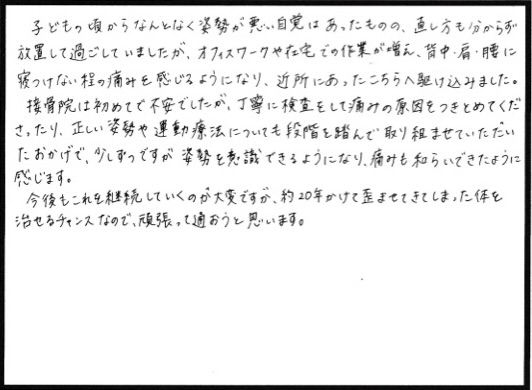 子どもの頃からなんとなく姿勢が悪い自覚はあったものの、直し方も分からず
放置して過ごしていましたが、オフィスワークや在宅での作業が増え、背中・肩・腰に
寝つけない程の痛みを感じるようになり、近所にあったこちらへ駆け込みました。
接骨院は初めてで不安でしたが、丁寧に検査をして痛みの原因をつきとめてくだ
さったり、正しい姿勢や運動療法についても段階を踏んで取り組ませていただい
たおかげで、少しずつですが姿勢を意識できるようになり、痛みも和らいできたように
感じます。
今後もこれを継続していくのが大変ですが、約20年かけて歪ませてきてしまった体を
治せるチャンスなので、頑張って通おうと思います。